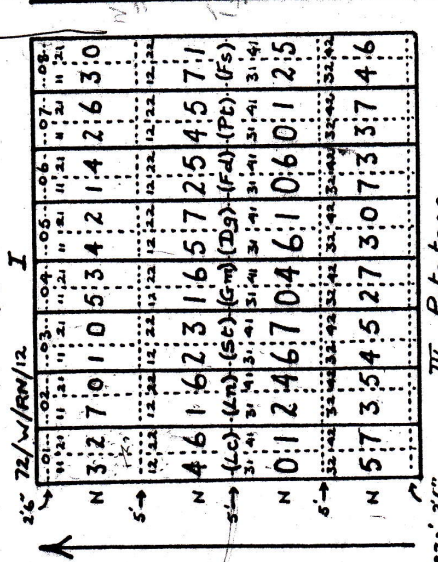 72/W/RN/12 I
2'6" 01 02 03 04 05 06 07 08
11 21 11 21 11 21 11 21 11 21 11 21 11 21 11 21
N 3 2 7 0 1 0 5 3 4 2 1 4 2 6 3 0
5' 12 22 12 22 12 22 12 22 12 22 12 22 12 22 12 22
N 4 6 1 6 2 3 1 6 5 7 2 5 4 5 7 1
5' (Lc) (Ln) (St) (Gm) (Dg) (Fd) (Pt) (Fs)
31 41 31 41 31 41 31 41 31 41 31 41 31 41 31 41
N 0 1 2 4 6 7 0 4 6 1 0 6 0 1 2 5
5' 32 42 32 42 32 42 32 42 32 42 32 42 32 42 32 42
N 5 7 3 5 4 5 2 7 3 0 7 3 3 7 4 6
2'6" III